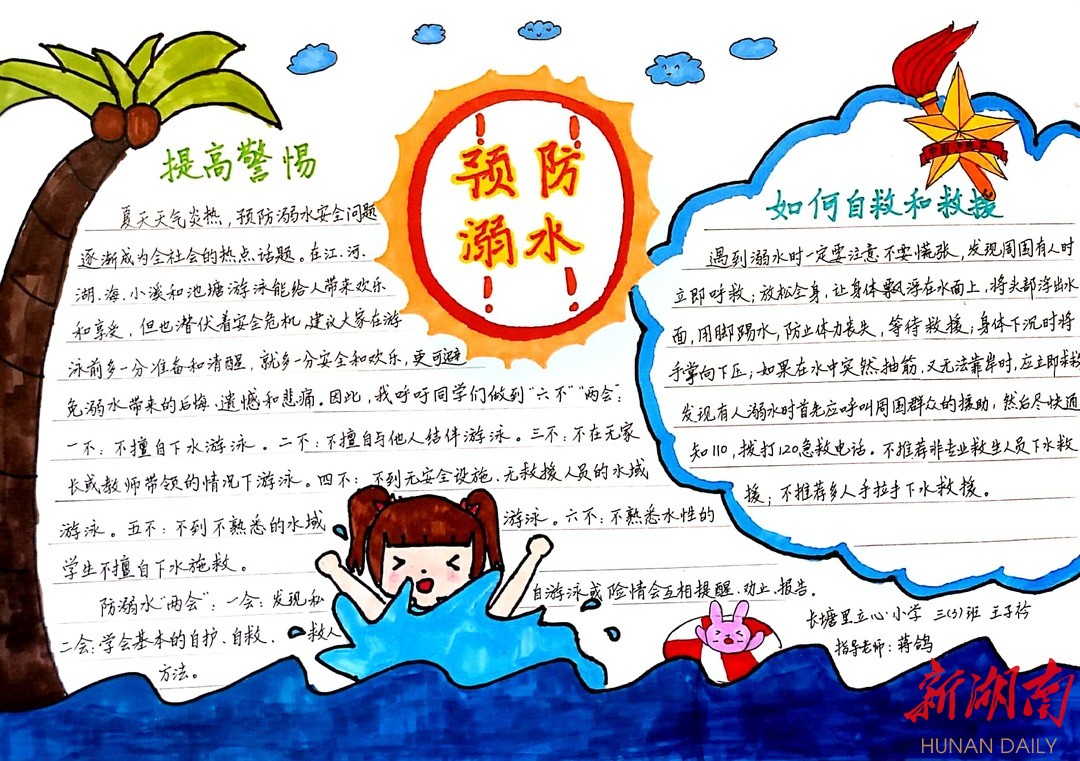 预防
溺水
提高警惕
夏天天气炎热,预防溺水安全问题
逐渐成为全社会的热点话题。在江、河、
湖、海、小溪和池塘游泳能给人带来欢乐
和享受,但也潜伏着安全危机,建议大家在游
泳前多一分准备和清醒,就多一分安全和欢乐,更可避
免溺水带来的后悔、遗憾和悲痛。因此,我呼吁同学们做到“六不”“两会”:
一不:不擅自下水游泳。二不:不擅自与他人结伴游泳。三不:不在无家
长或教师带领的情况下游泳。四不:不到无安全设施、无救援人员的水域
游泳。五不:不到不熟悉的水域 游泳。六不:不熟悉水性的
学生不擅自下水施救。
防溺水“两会”:一会:发现私 自游泳或险情会互相提醒、劝止、报告。
二会:学会基本的自护、自救、救人
方法。
如何自救和救援
遇到溺水时一定要注意不要慌张,发现周围有人时
立即呼救;放松全身,让身体飘浮在水面上,将头部浮出水
面,用脚踢水,防止体力丧失,等待救援;身体下沉时将
手掌向下压;如果在水中突然抽筋,又无法靠岸时,应立即求救
发现有人溺水时首先应呼叫周围群众的援助,然后尽快通
知110,拨打120急救电话。不推荐非专业救生人员下水救
援;不推荐多人手拉手下水救援。
长塘里立心小学 三(3)班 王子衿
指导老师:蒋鸽
新湖南
HUNAN DAILY